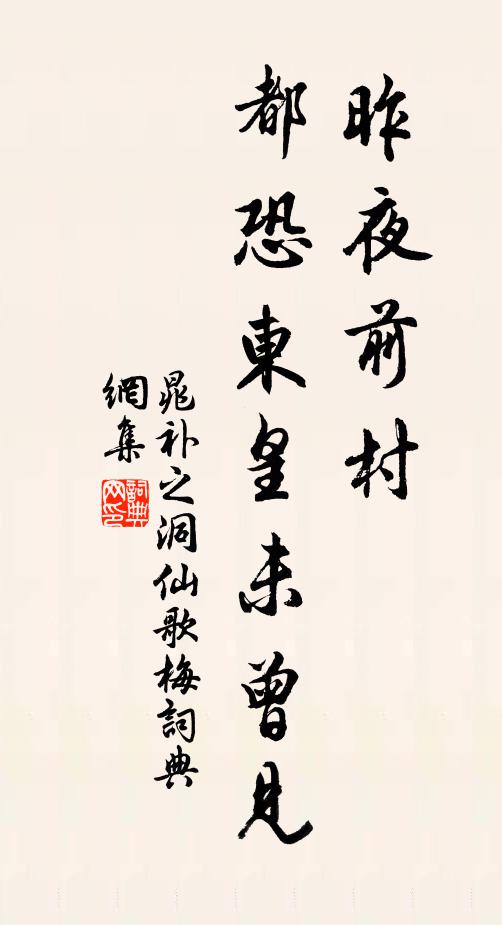 昨夜前村
都恐東皇未曾見
晁补之洞仙歌梅詞典
網集
詞典
网印